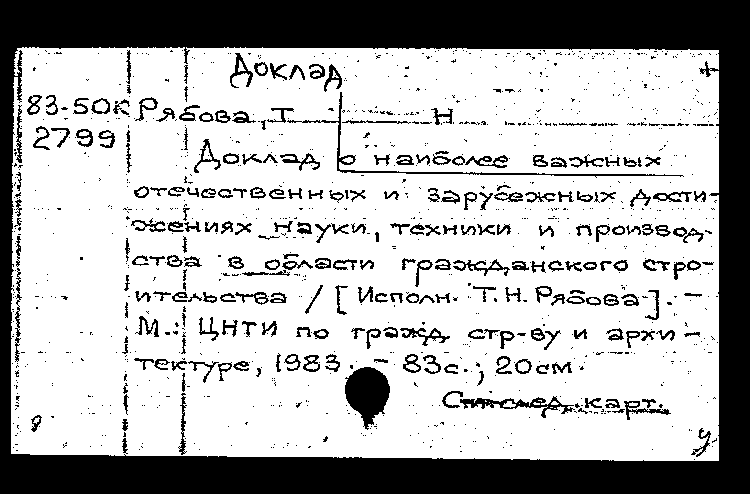 Доклад
83-50К Рябова, Т Н
2799
Доклад о наиболее важных
отечественных и зарубежных дости-
жениях науки, техники и производ-
ства в области гражданского стро-
ительства / [Исполн. Т.Н. Рябова]. -
М.: ЦНТИ по гражд. стр-ву и архи-
тектуре, 1983. - 83с.; 20см.
См. след. карт.
у